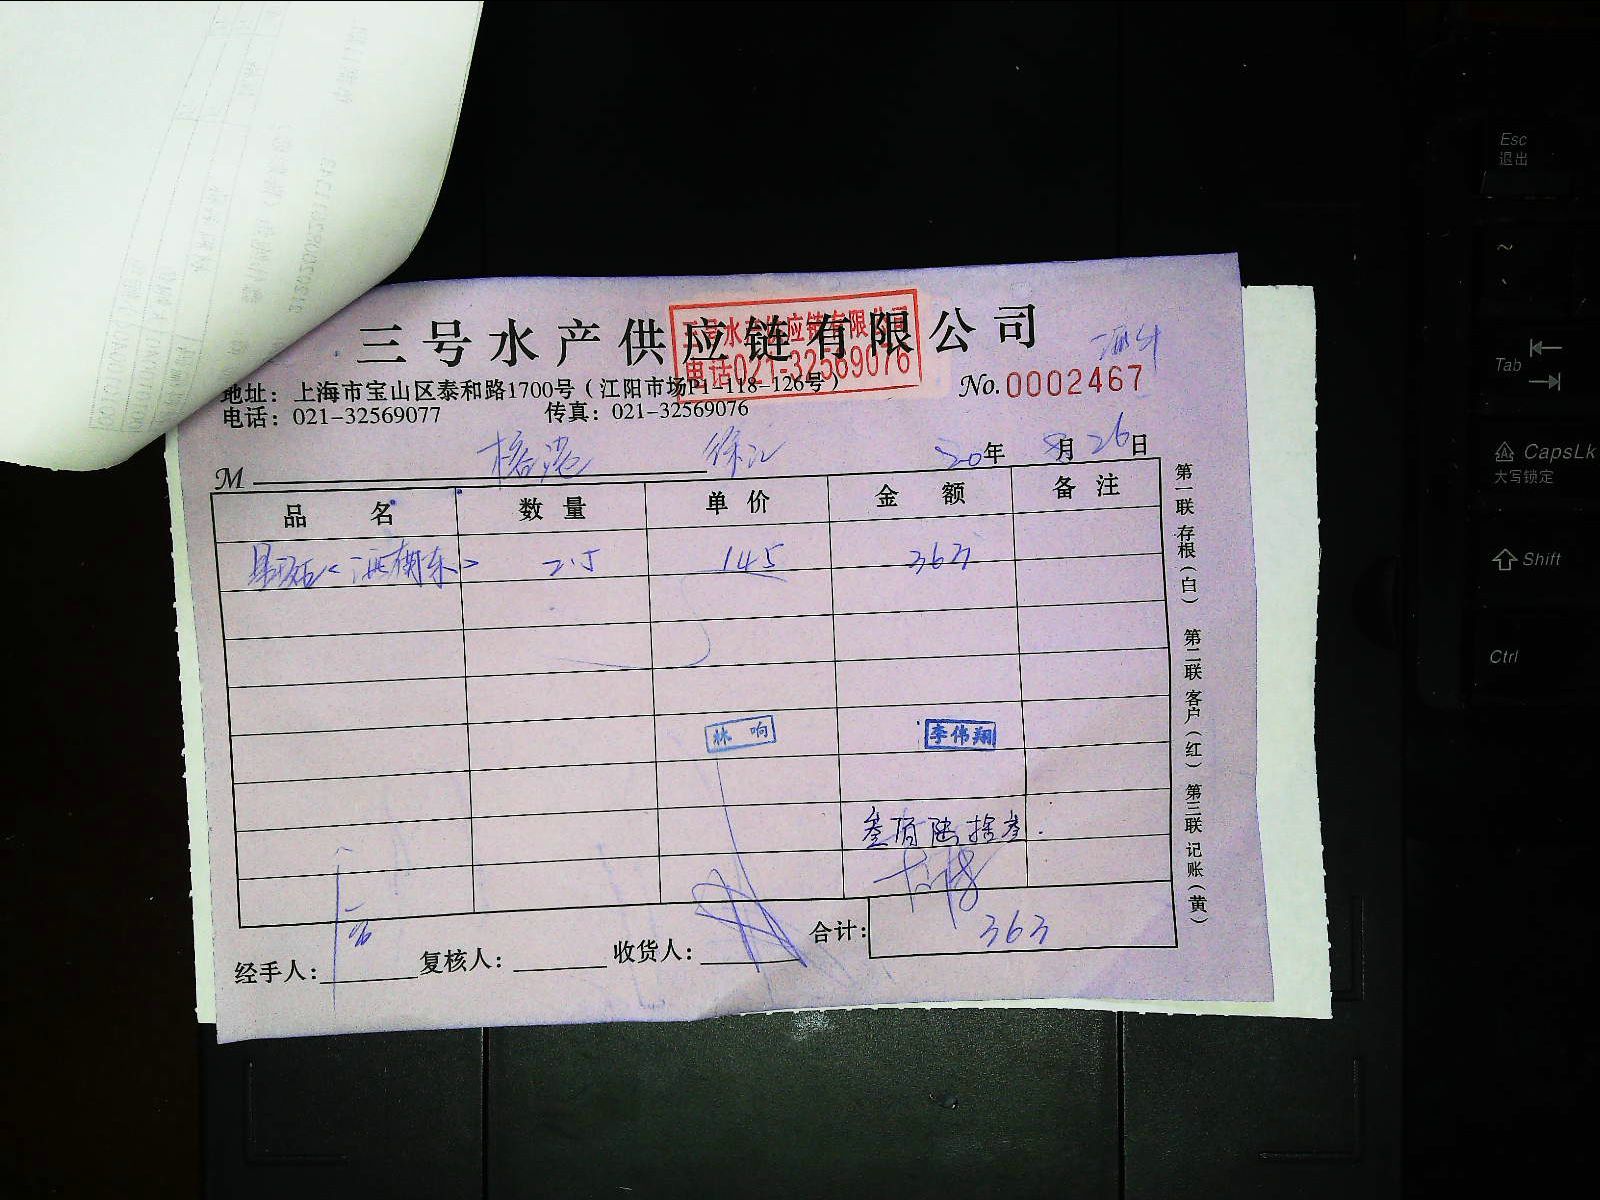 三号水产供应链有限公司
三号水产供应链有限公司
电话021-32569076
地址：上海市宝山区泰和路1700号（江阳市场P1-118-126号）
No.0002467
电话：021-32569077 传真：021-32569076
徐汇
20年 8月26日
M
品名 数量 单价 金额 备注
2.5 145 363
林响 李伟翔
叁佰陆拾叁.
合计： 363
经手人： 复核人： 收货人：
第一联存根（白） 第二联客户（红） 第三联记账（黄）
Esc
退出
~
Tab
CapsLk
大写锁定
Shift
Ctrl